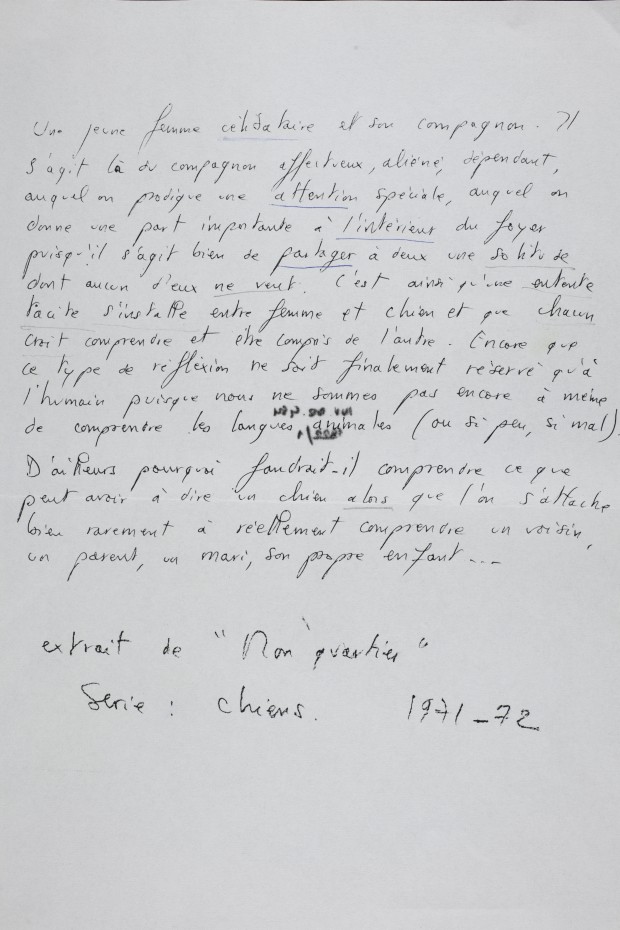 Une jeune femme célibataire et son compagnon. Il
s'agit là du compagnon affectueux, aliéné, dépendant,
auquel on prodigue une attention spéciale, auquel on
donne une part importante à l'intérieur du foyer
puisqu'il s'agit bien de partager à deux une solitude
dont aucun d'eux ne veut. C'est ainsi qu'une entente
tacite s'installe entre femme et chien et que chacun
croit comprendre et être compris de l'autre. Encore que
ce type de réflexion ne soit finalement réservé qu'à
l'humain puisque nous ne sommes pas encore à même
de comprendre les langues animales (ou si peu, si mal).
D'ailleurs pourquoi faudrait-il comprendre ce que
peut avoir à dire un chien alors que l'on s'attache
bien rarement à réellement comprendre un voisin,
un parent, un mari, son propre enfant...
extrait de "Mon quartier"
Serie : chiens. 1971-72